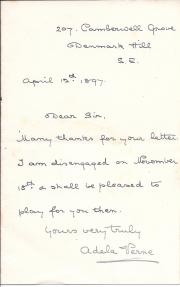 207. Camberwell Grove
Denmark Hill
S. E.
April 13th 1897.
Dear Sir,
Many thanks for your letter
I am disengaged on November
18th & shall be pleased to
play for you then.
Yours very truly
Adela Verne